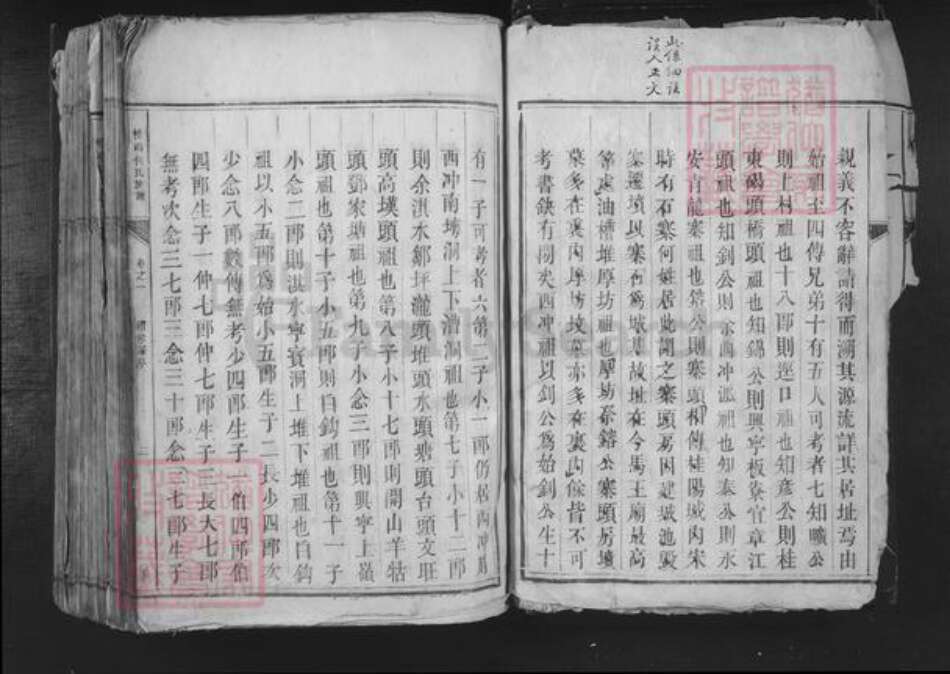 此係細註
誤入正文
親義不容辭請得而溯其源流詳其居址焉由
始祖至四傳兄弟十有五人可考者七知曠公
則上村祖也十八郎則逕口祖也知彥公則桂
東碣頭橋頭祖也知錦公則興寧板寮官章江
頭祖也知釗公則 西冲派祖也知泰公則永
安青龍寨祖也 公則寨頭 桂陽城內宋
時有石寨何姓居此開之寨頭 因建城池毀
寨遷墳以寨石為城 故址在今馬王廟最高
等處油槽堆厚坊祖也厚坊 鎔公寨頭房墳
墓多在寨內厚坊墳墓亦多在裏內餘皆不可
考書缺有閒矣西冲祖以釗公為始釗公生十
有一子可考者六第二子小一郎仍居西冲
西冲南塘洞上下漕洞祖也第七子小十二郎
則余洪水鄒坪瀧頭堆頭水頭塘頭台頭文旺
頭高墣頭祖也第八子小十七郎則開山羊牯
頭鄧家塘祖也第九子小念三郎則興寧上嶺
頭祖也第十子小五郎則白鈎祖也第十一子
小念二郎則洪水寧 洞上堆下堆祖也白鈎
祖以小五郎為始小五郎生子二長少四郎次
少念八郎數傳無考少四郎生子一伯四郎伯
四郎生子一仲七郎仲七郎生子三長大七郎
無考次念三七郎三念三十郎念三七郎生子
氏族譜
卷之一